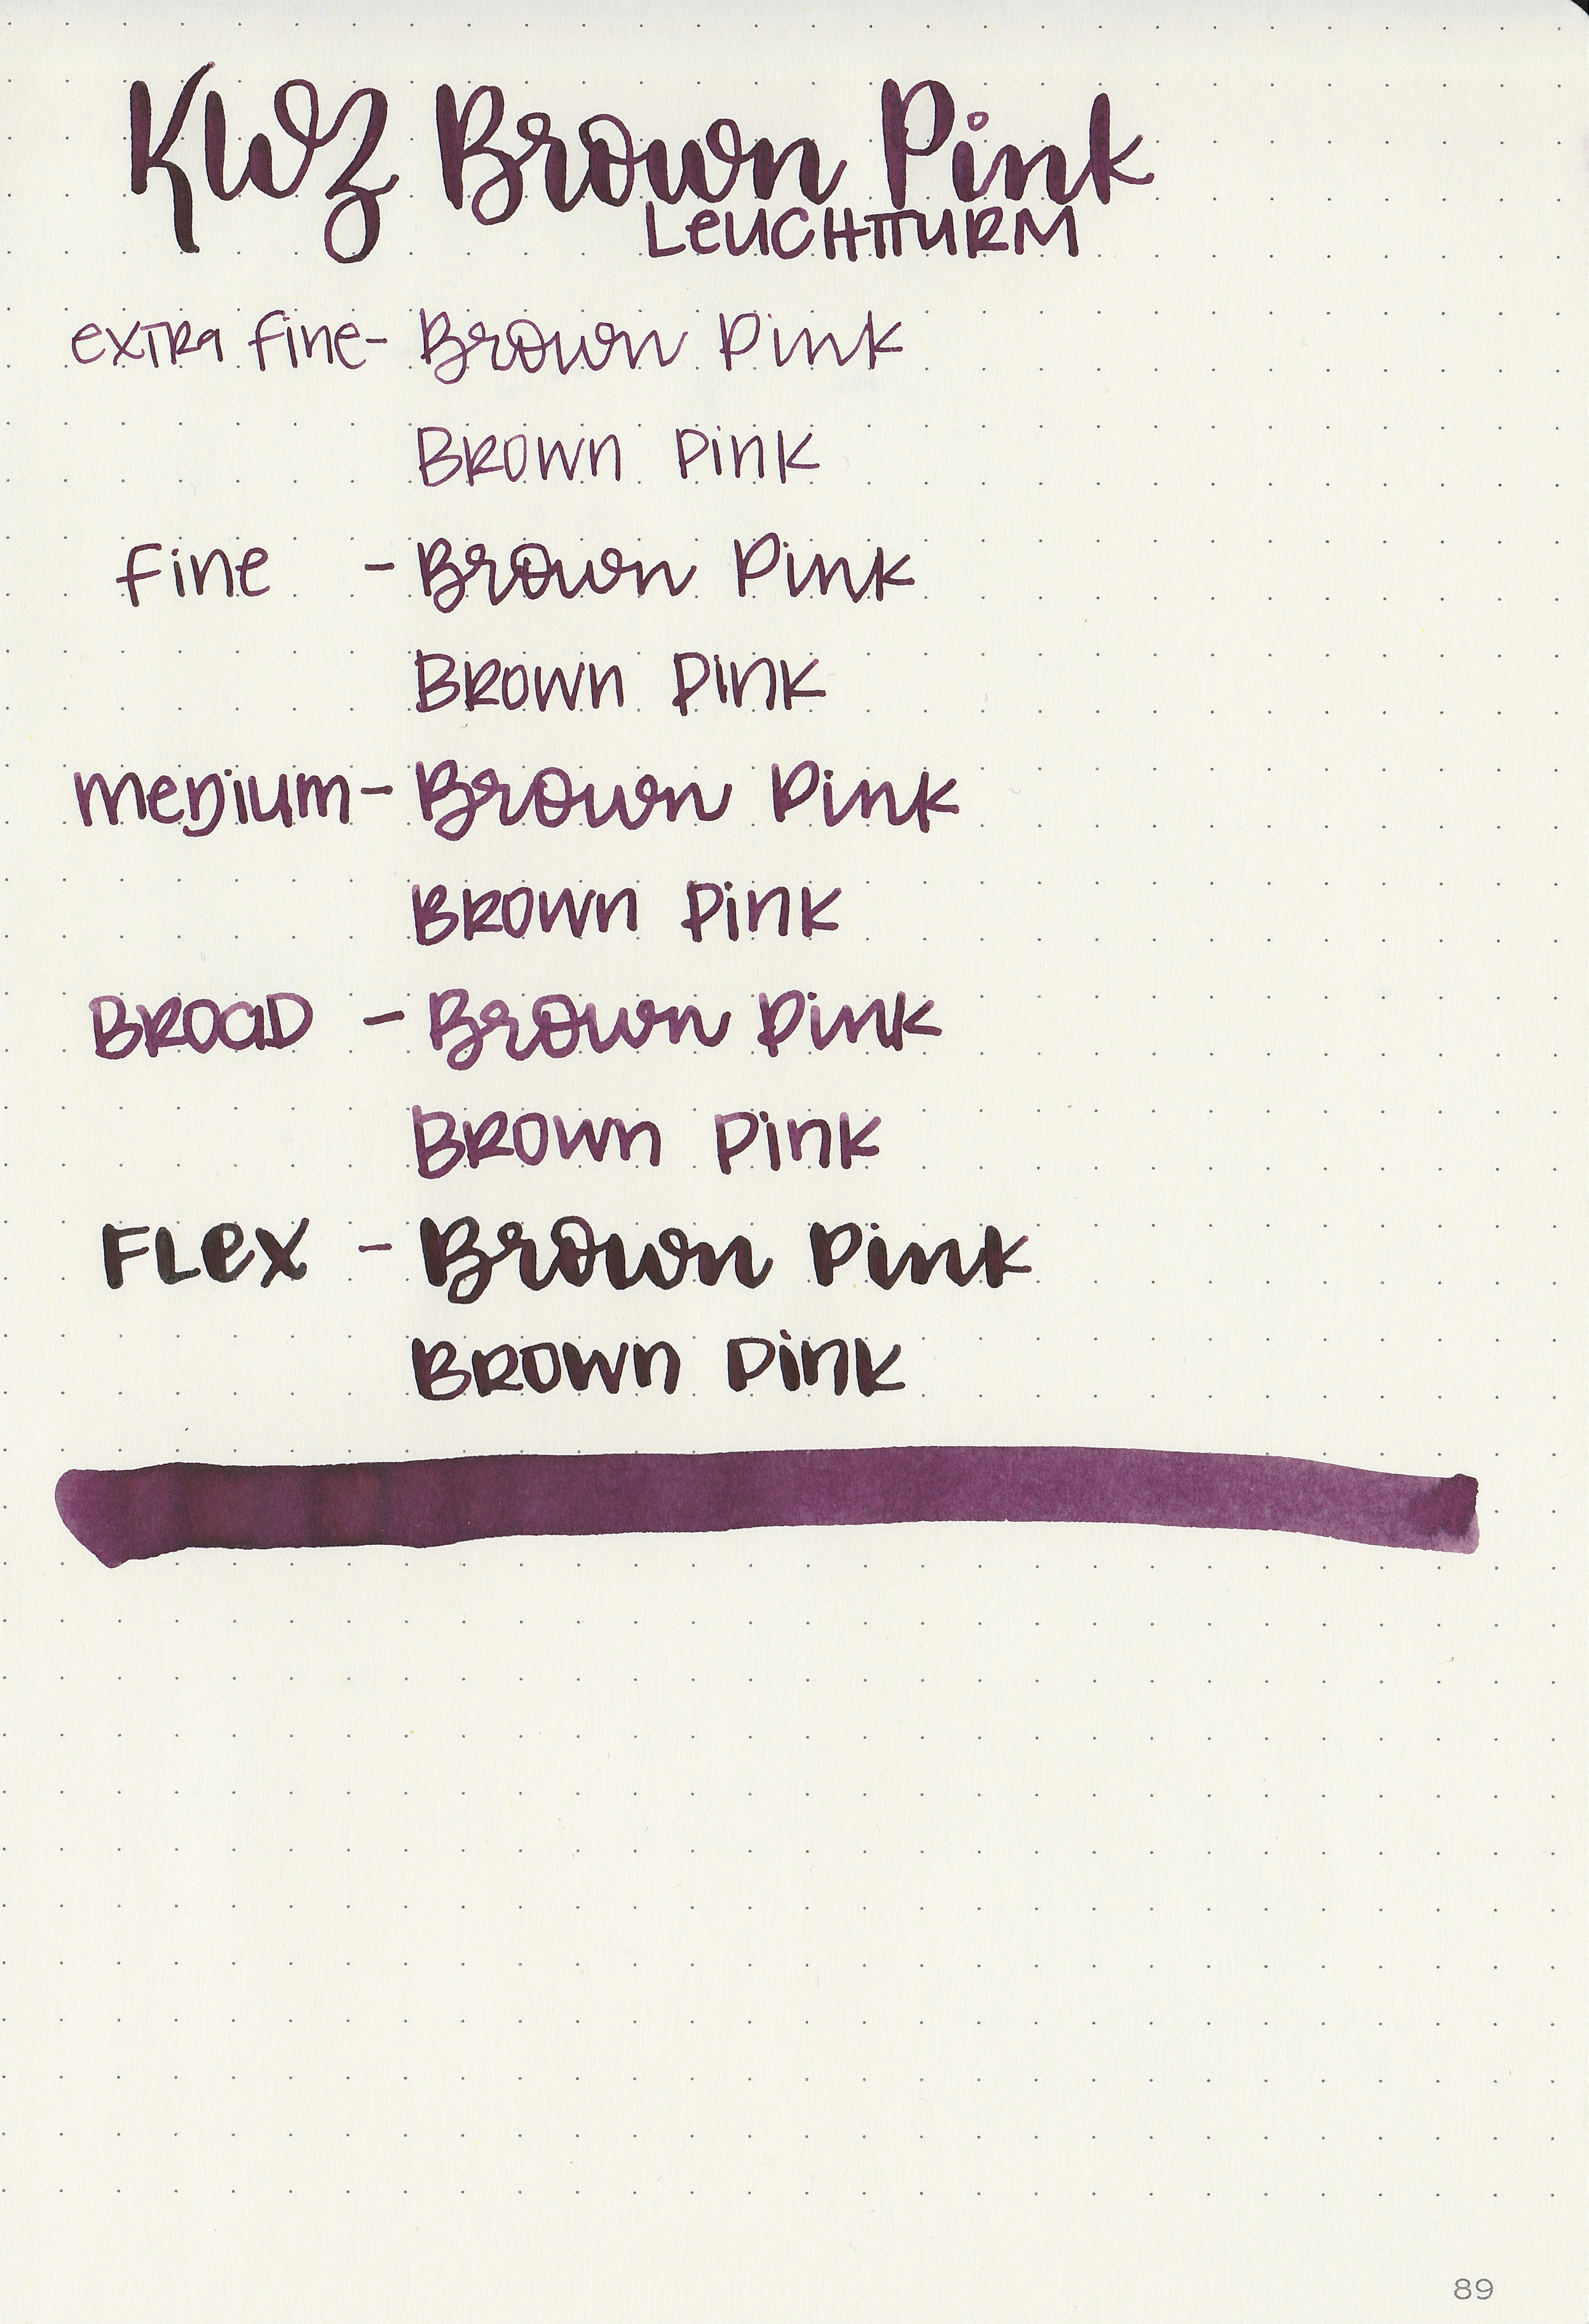 KWZ Brown Pink
Leuchtturm
extra fine- Brown Pink
Brown Pink
fine - Brown Pink
Brown Pink
medium- Brown Pink
Brown Pink
Broad - Brown Pink
Brown Pink
Flex - Brown Pink
Brown Pink
89